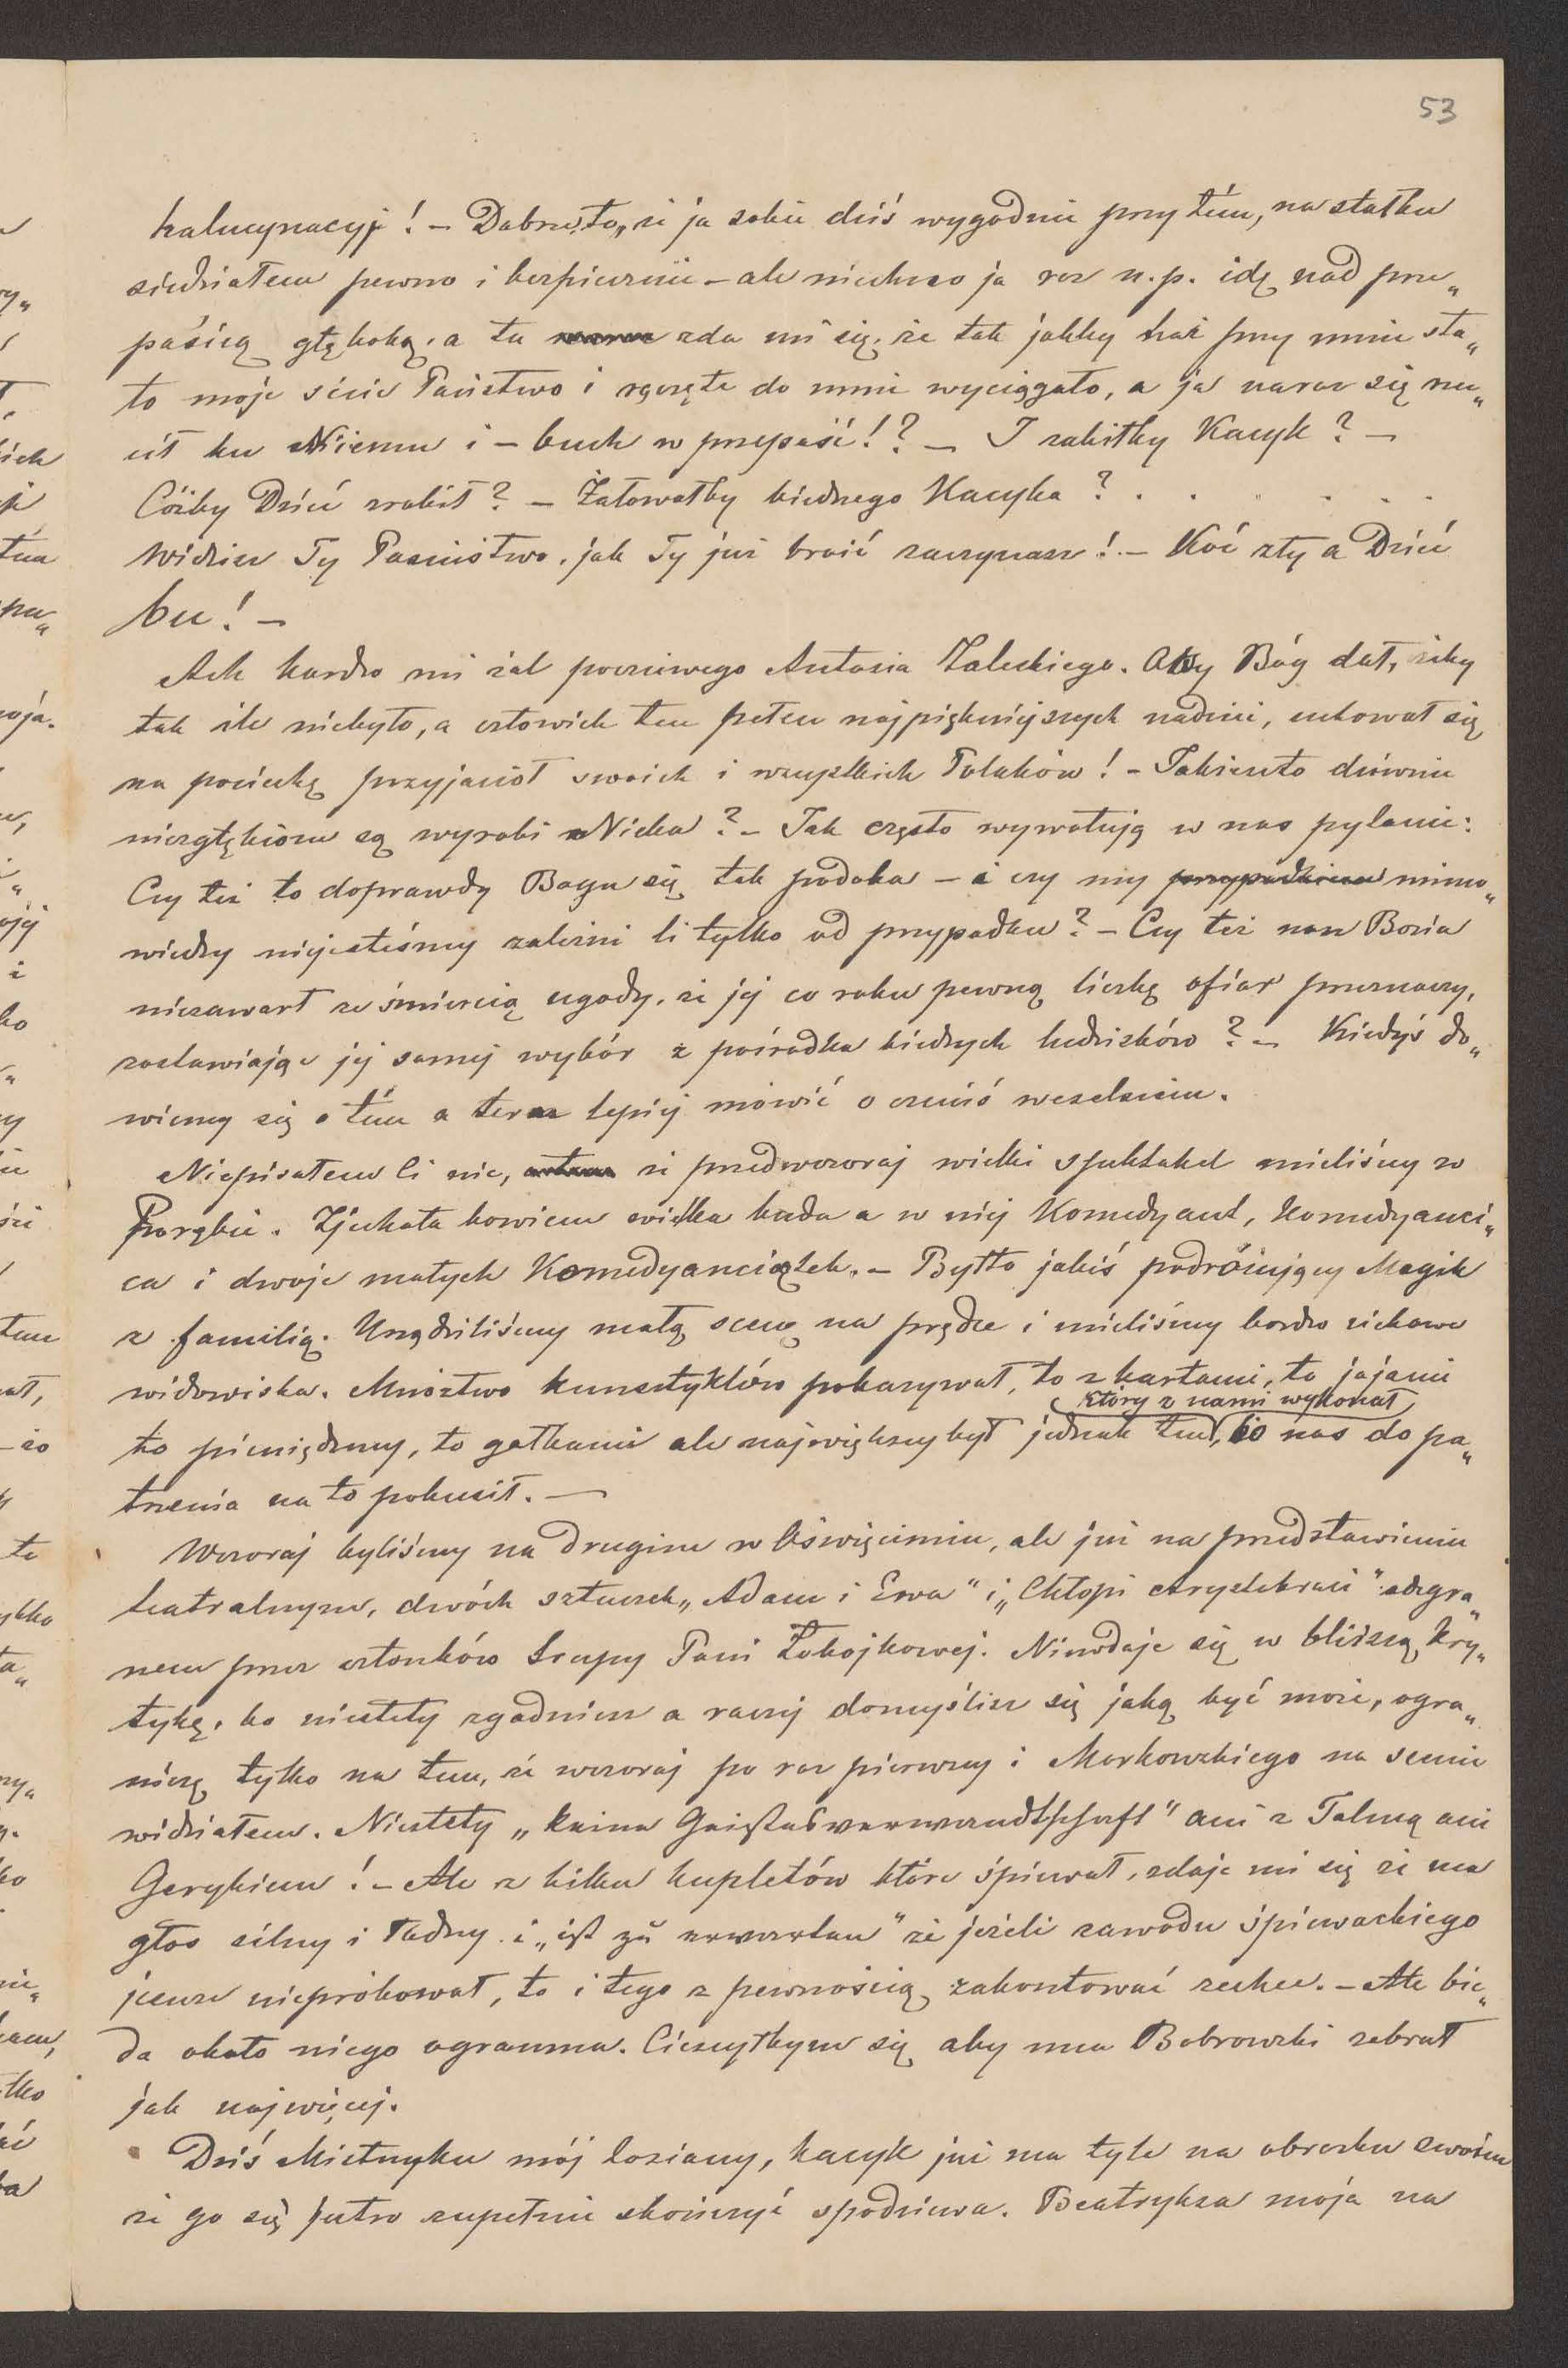 53
halucynacyje! – Dobrze to, że ja sobie dziś wygodnie przy tém, na stołku
siedziałem pewno i bezpiecznie – ale niechno ja raz n.p. idę nad prze„
paścią głęboką, a tu zda mi się, że tak jakby haź przy mnie sta„
ło moje Państwo i rączęta do mnie wyciągało, a ja naraz się rzu„
cił ku Niemu i – buch w przepaść!? – I zabiłby Kacyk? –
Cóżby Dzieć zrobił? – Żałowałby biednego Kacyka? . . . . . .
Widzisz Ty Paeństwo, jak Ty już broić zaczynasz! – Koć zły a Dzieć
bu! –
Ach bardzo mi żal poczciwego Antosia Zaleskiego. Oby Bóg dał, żeby
tak źle niebyło, a człowiek ten pełen najpiękniejszych nadziei, uchował się
na pociechę przyjaciół swoich i wszystkich Polaków! – Jakieżto dziwnie
niezgłębione są wyroki Nieba? – Jak często wywołują w nas pytanie:
Czy też to doprawdy Bogu się tak podoba – i czy my przypadkiem mimo„
wiedzy niejesteśmy zależni li tylko od przypadku? – Czy też nasz Bozia
niezawarł ze śmiercią ugody, że jej co roku pewną liczbę ofiar przeznaczy,
zostawiając jej samej wybór z pośrodka biednych ludzisków? – Kiedyś do„
wiemy się o tém a teraz lepiej mówić o czemś weselszem.
Niepisałem Ci nic, że przedwczoraj wielki spektakel mieliśmy w
Porębie. Zjechała bowiem wielka buda a w niej Komedyant, Komedyanci„
ca i dwoje małych Komedyanciątek. – Byłto jakiś podróżujący Magik
z familią. Urządziliśmy małą scenę na prędce i mieliśmy bardzo ciekawe
widowiska. Mnóztwo kunsztyków pokazywał, to z kartami, to jajami
który z nami wykonał
to pieniędzmy, to gałkami ale największy był jednak ten, bo nas do pa„
trzenia na to pokusił. –
Wczoraj byliśmy na drugim w Oświęcimiu, ale już na przedstawieniu
teatralnym, dwóch sztuczek „Adam i Ewa“ i „Chłopi Arystokraci“ odegra„
nem przez członków trupy Pani Łobojkowej. Niewdaję się w bliższą kry„
tykę, bo niestety zgadniesz a raczej domyślisz się jaką być może, ogra„
niczę tylko na tem, że wczoraj po raz pierwszy i Morkowskiego na scenie
widziałem. Niestety „keine Geistesverwandtschaft“ ani z Talmą ani
Gerykiem! – Ale z kilku kupletów które śpiewał, zdaje mi się że ma
głos silny i ładny i „ist zu erwarten“ że jeżeli zawodu śpiewackiego
jeszcze niepróbował, to i tego z pewnością zakosztować zechce. – Ale bie„
da około niego ogromna. Cieszyłbym się aby mu Bobrowski zebrał
jak najwięcej.
Dziś Mietnyku mój koziany, kacyk już ma tyle na obrazku swoim
że go się jutro zupełnie skończyć spodziewa. Beatryksa moja na